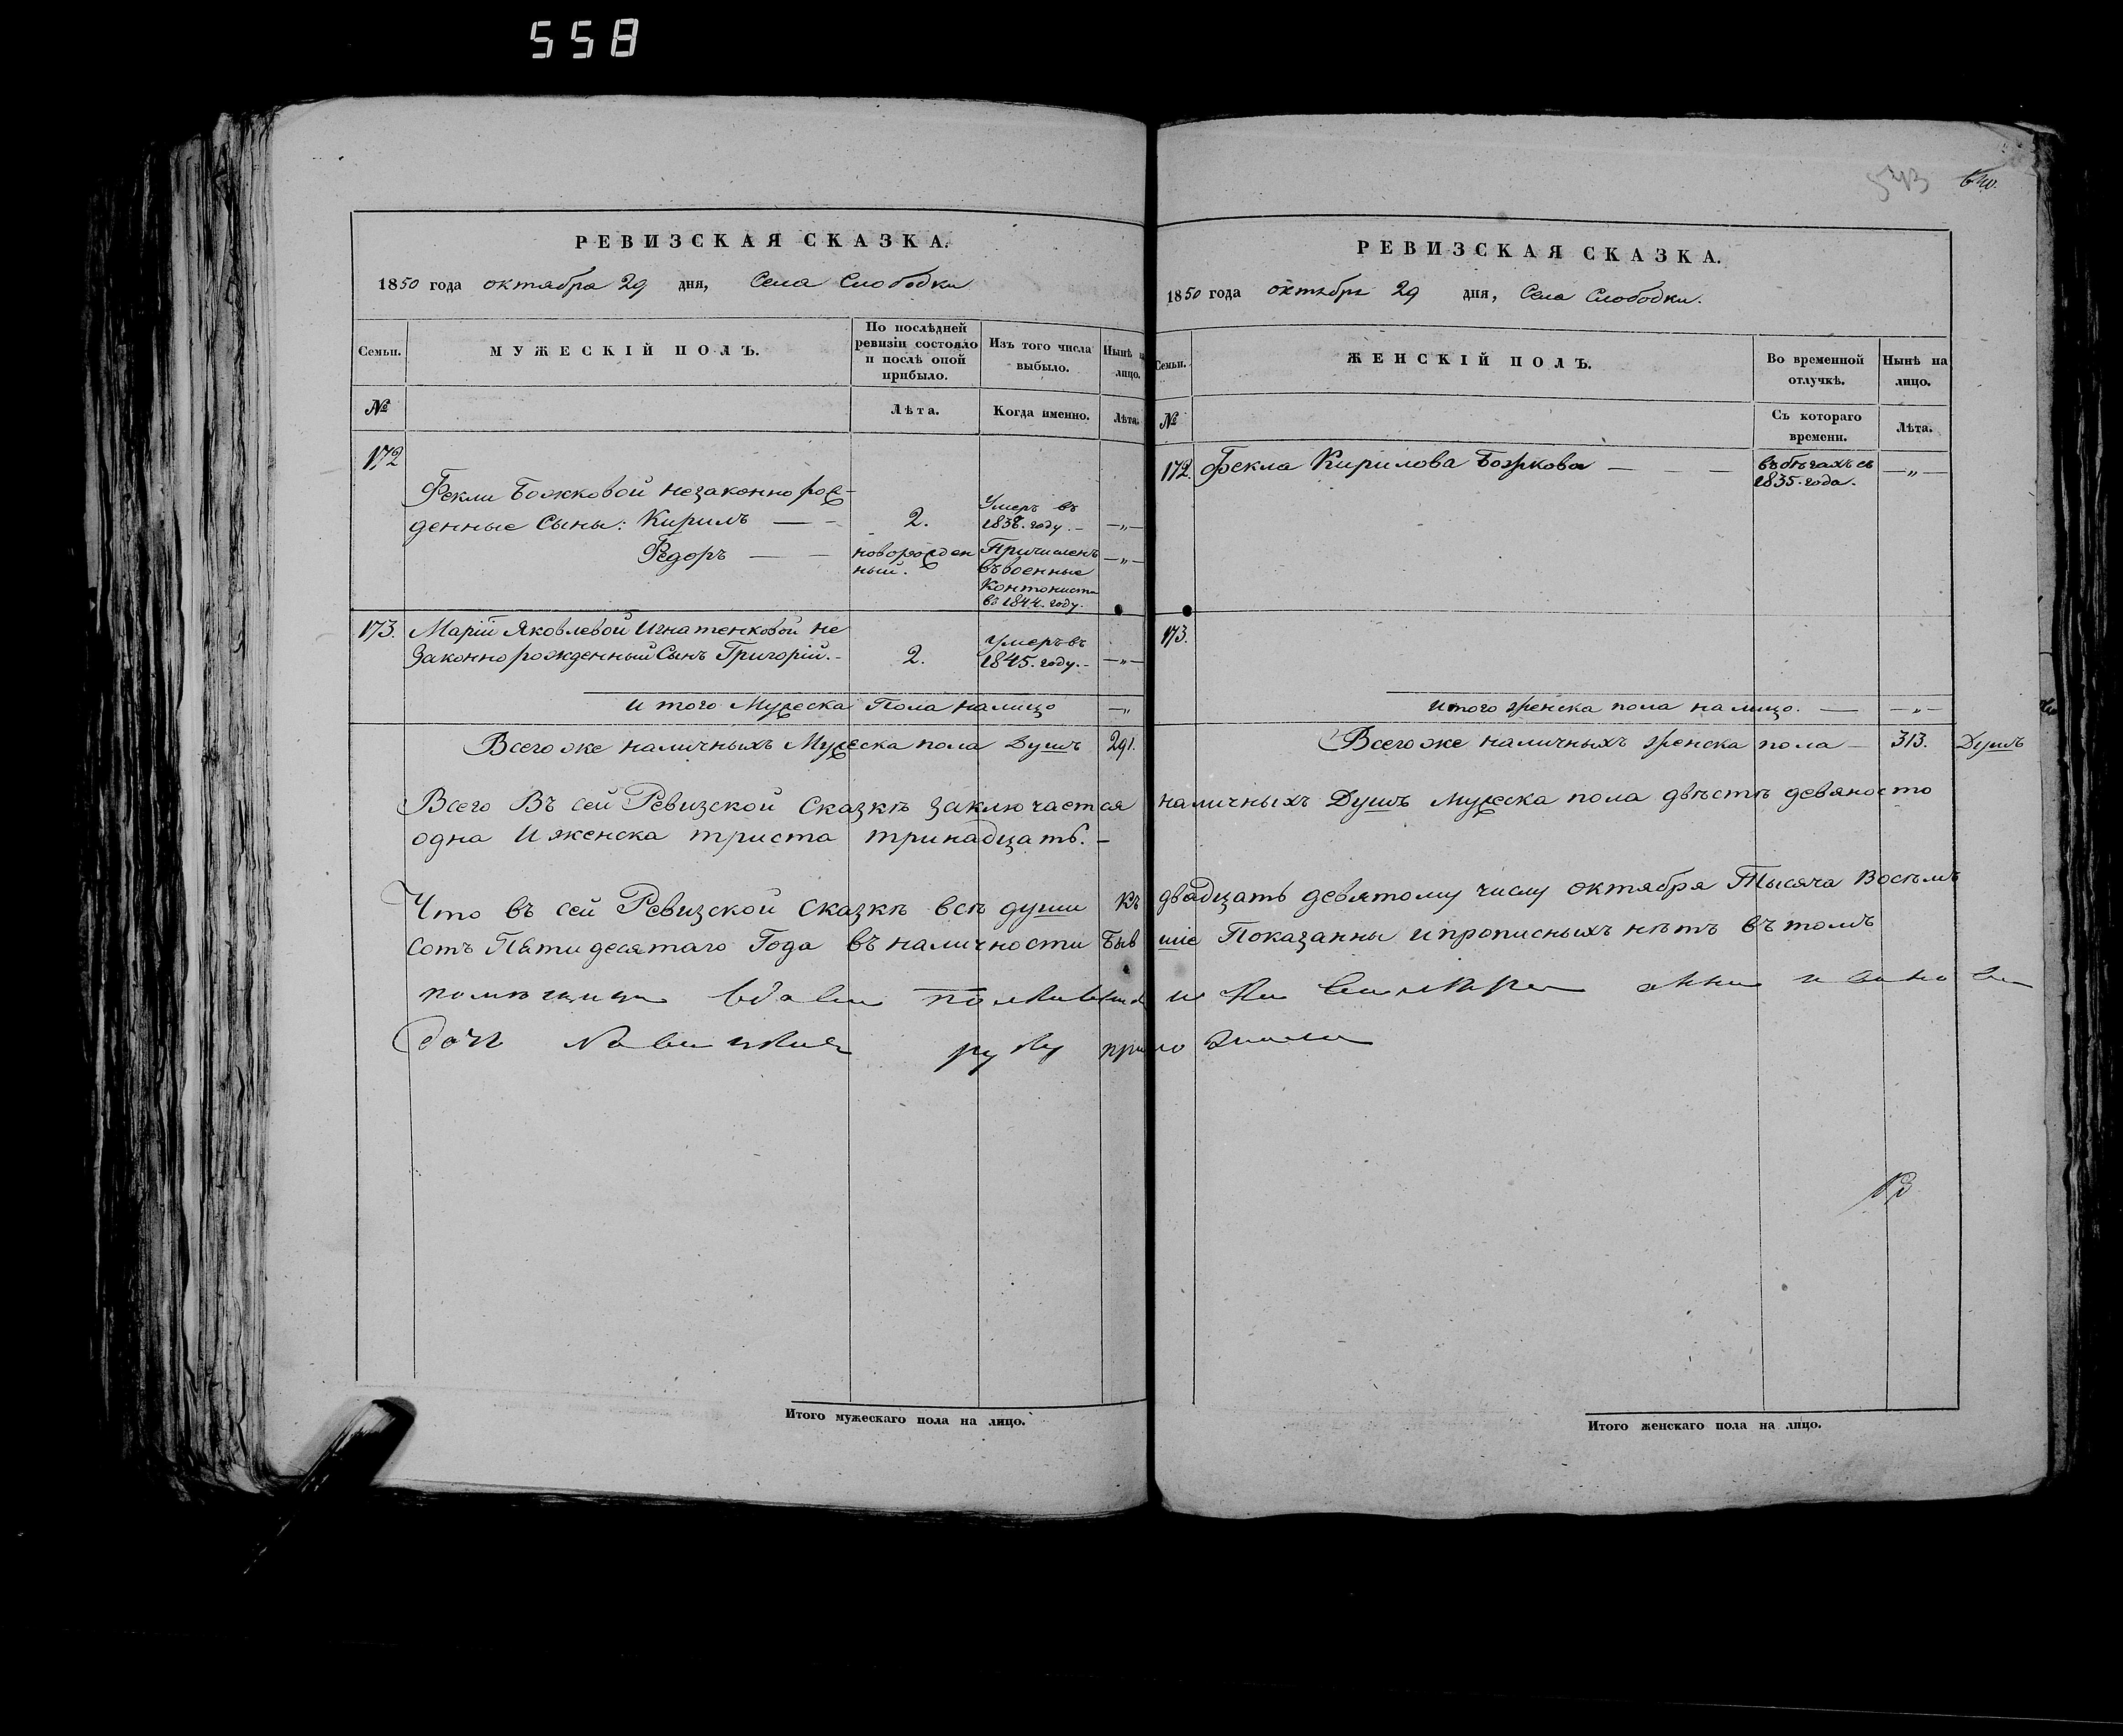 558
543
РЕВИЗСКАЯ СКАЗКА.
1850 года октября 29 дня, Села Слободки
Семьи.
МУЖЕСКІЙ ПОЛЪ.
По послѣдней ревизіи состояло и послѣ оной прибыло.
Изъ того числа выбыло.
Нынѣ на лицо.
№
Лѣта.
Когда именно.
Лѣта.
172
Фекли Божковой незаконно рож-
денные Сыны: Кирилъ — — 2. Умеръ въ 1838. году. — „ —
Федоръ — — новорожденный. Причисленъ въ военные Контонисты въ 1844. году. — „ —
173. Маріи Яковлевой Игнатенковой не
законно рожденный Сынъ Григорій. — 2. Умеръ въ 1845. году. — — „ —
И того Мужеска Пола налицо — „
Всего же наличныхъ Мужеска пола Душъ 291.
РЕВИЗСКАЯ СКАЗКА.
1850 года октября 29 дня, Села Слободки.
Семьи.
ЖЕНСКІЙ ПОЛЪ.
Во временной отлучкѣ.
Нынѣ на лицо.
№
Съ котораго времени.
Лѣта.
172. Фекла Кирилова Божкова — — — въ бѣгахъ съ 1835. года. — „ —
173.
Итого женска пола налицо. — — „ —
Всего же наличныхъ женска пола — 313. Душъ
Всего Въ сей Ревизской Сказкѣ заключается наличныхъ Душъ мужеска пола двѣстѣ девяносто
одна И женска триста тринадцать. —
Что въ сей Ревизской Сказкѣ всѣ души къ двадцать девятому числу октября Тысяча Восемъ
сотъ Пятидесятаго Года въ наличности бывшіе Показанны и прописныхъ нѣтъ въ томъ
помѣщица вдова
дочь руку приложила
Итого мужескаго пола на лицо.
Итого женскаго пола на лицо.